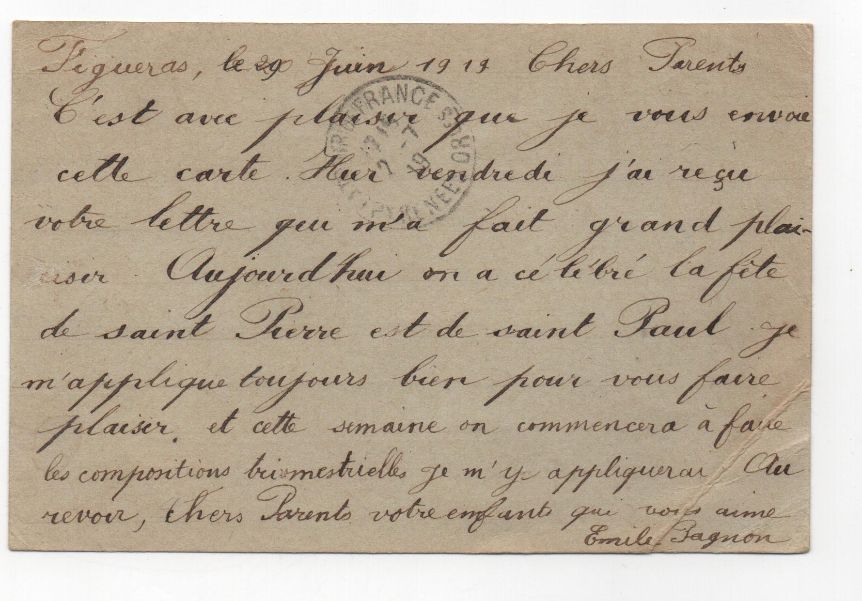 Figueras, le 29 Juin 1919 Chers Parents
C'est avec plaisir que je vous envoie
cette carte. Hier vendredi j'ai reçu
votre lettre qui m'a fait grand plai-
sir Aujourd'hui on a célébré la fête
de saint Pierre est de saint Paul. je
m'applique toujours bien pour vous faire
plaisir, et cette semaine on commencera à faire
les compositions trimestrielles je m'y appliquerai Au
revoir, Chers Parents votre enfants qui vous aime
Emile Pagnon
FRANCE